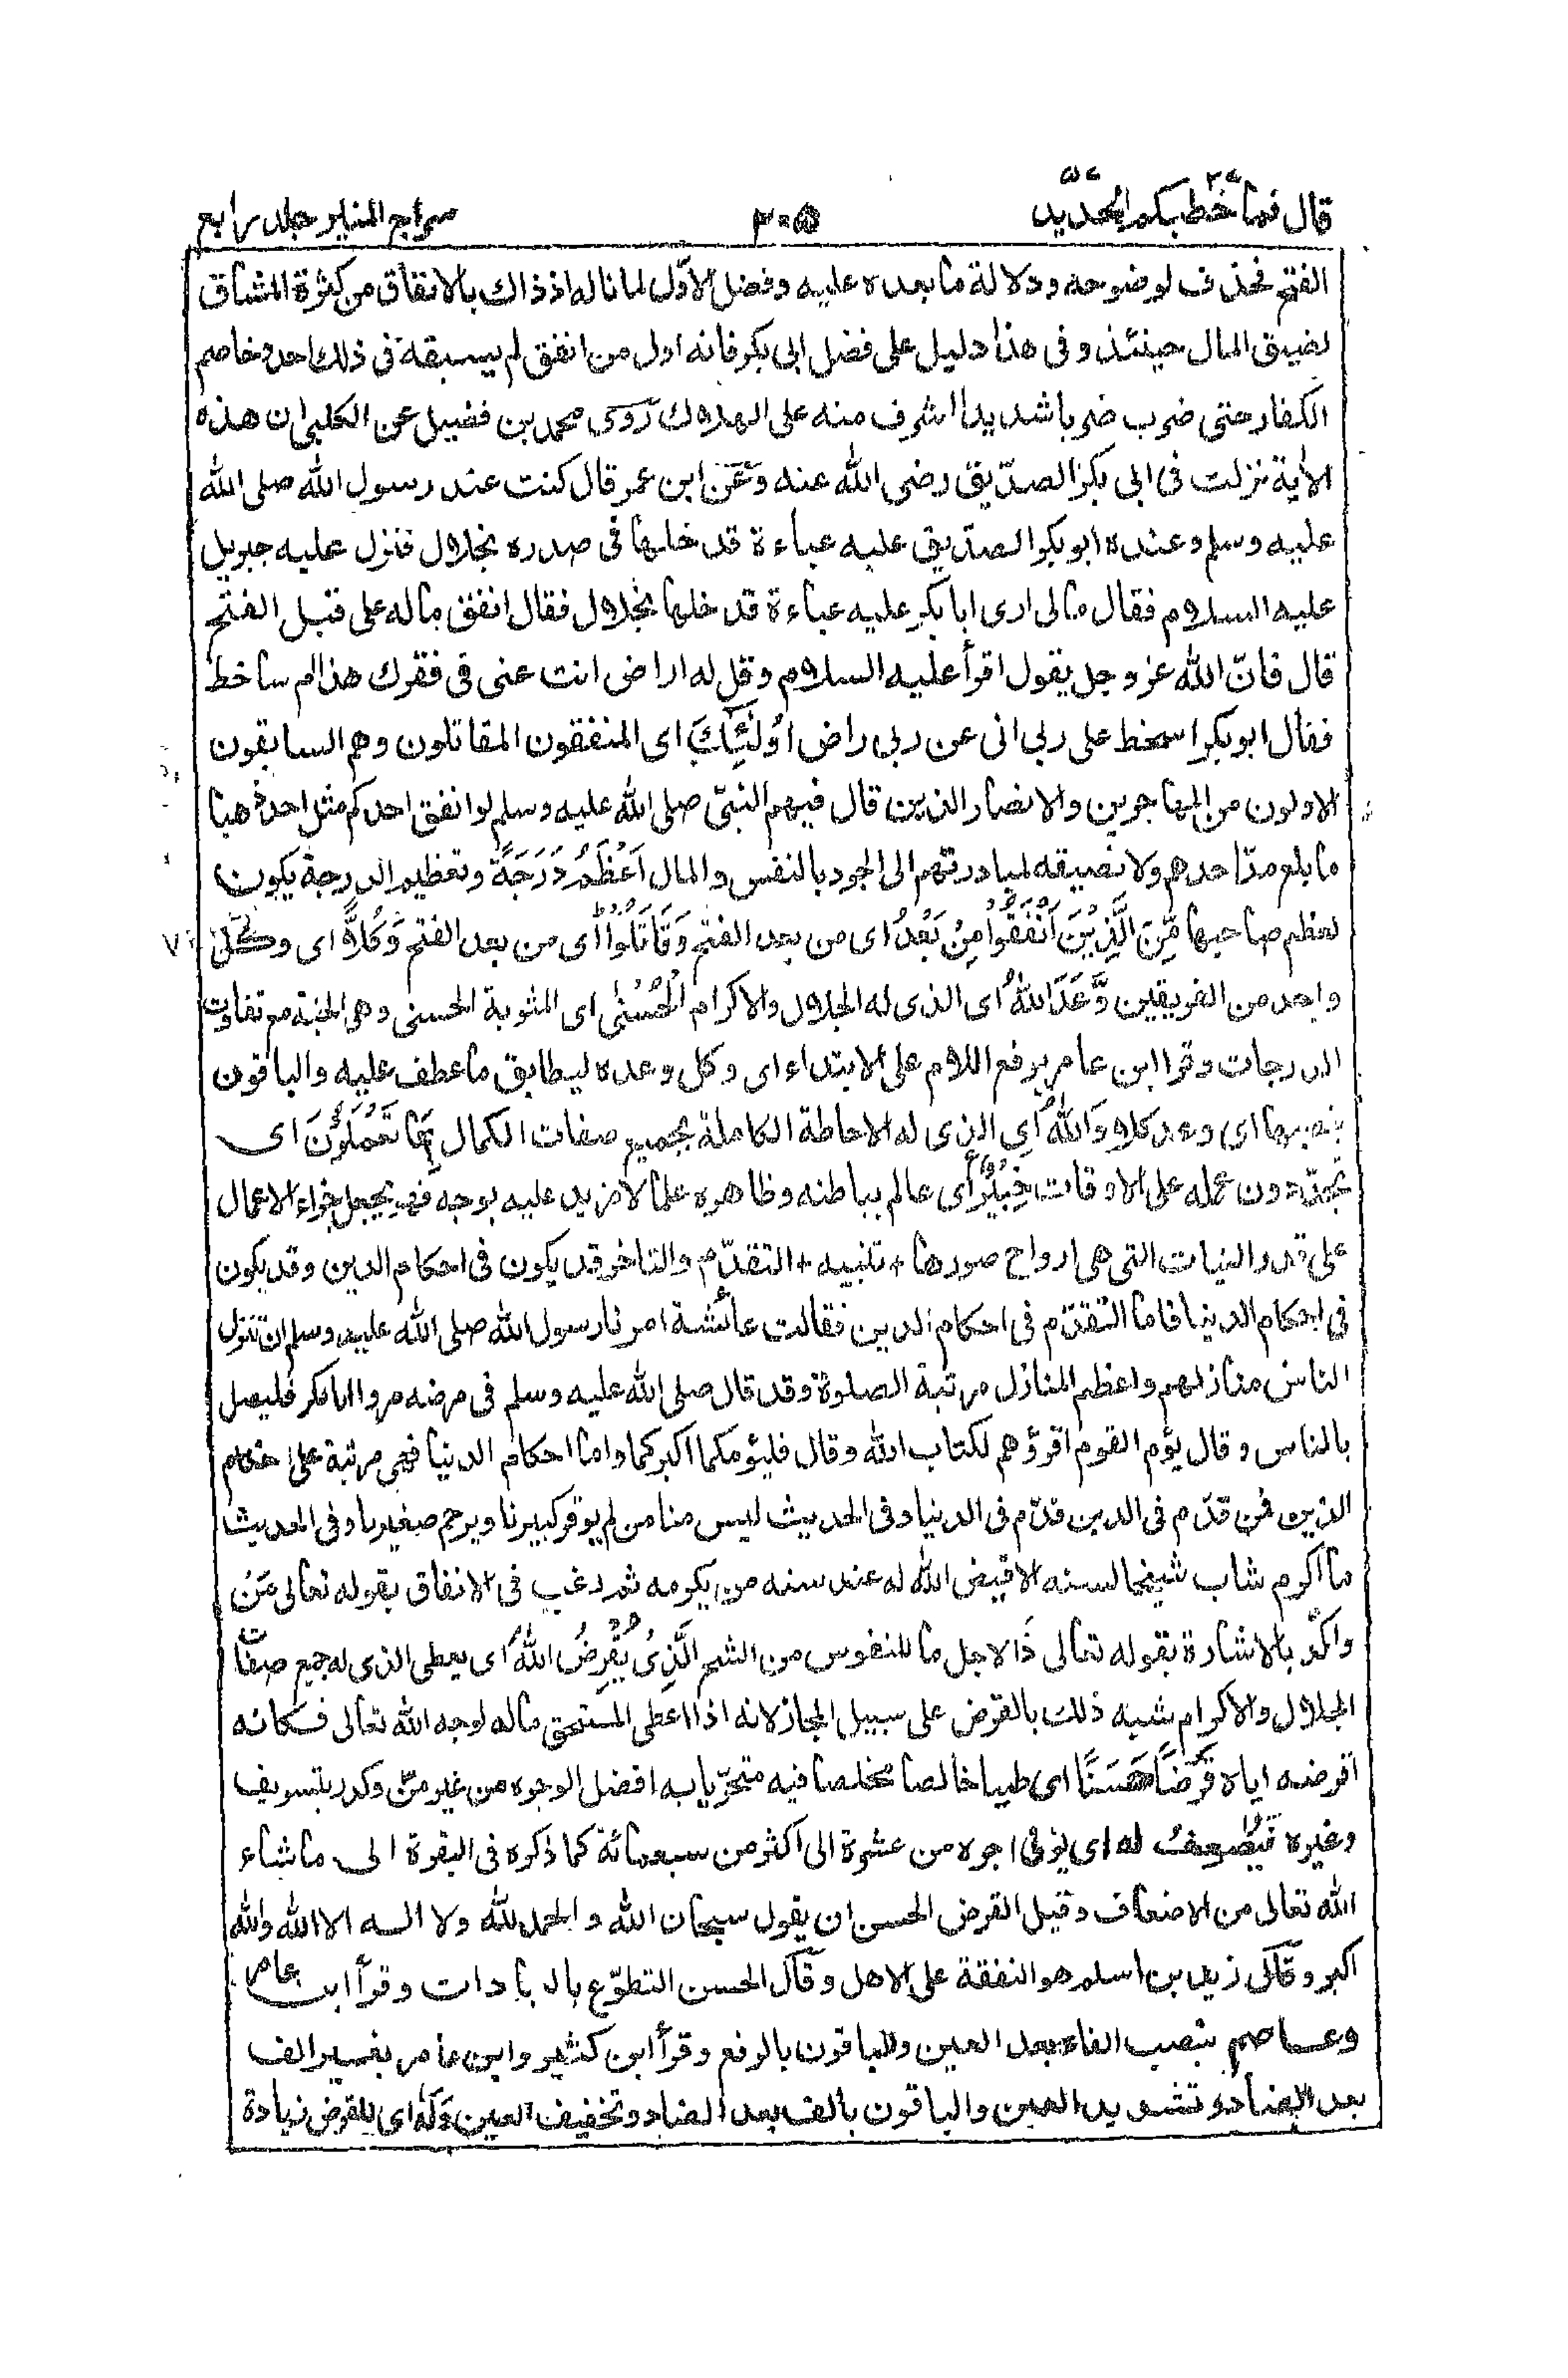 قال فما خطبكم ٢٧ الحديد ٥٧
٢٠٥
سراج المنير جلد رابع
الفتح فحذف لوضوحه ودلالة ما بعده عليه وفضل الاوّل لما ناله اذ ذاك بالانفاق من كثرة المشاق
لضيق المال حينئذ وفى هذا دليل على فضل ابى بكر فانه اول من انفق لم يسبقه فى ذلك احد وخاصم
الكفار حتى ضرب ضربا شديدا اشرف منه على الهلاك روى محمد بن فضيل عن الكلبى ان هذه
الاٰية نزلت فى ابى بكر الصدّيق رضى الله عنه وعن ابن عمر قال كنت عند رسول الله صلى الله
عليه وسلم وعنده ابو بكر الصدّيق عليه عباءة قد خلها فى صدره بخلال فنزل عليه جبريل
عليه السلام فقال مالى ارى ابا بكر عليه عباءة قد خلها بخلال فقال انفق ماله على قبل الفتح
قال فانّ الله عز وجل يقول اقرأ عليه السلام وقل له اراض انت عنى فى فقرك هذا ام ساخط
فقال ابو بكر اسخط على ربى انى عن ربى راض اُولٰٓئِكَ اى المنفقون المقاتلون وهم السابقون
الاولون من المهاجرين والانصار الذين قال فيهم النبىّ صلى الله عليه وسلم لو انفق احدكم مثل احد ذهبا
ما بلغ مدّ احدهم ولا نصيفه لمبادرتهم الى الجود بالنفس والمال اَعْظَمُ دَرَجَةً وتعظيم الدرجة يكون
لعظم صاحبها مِّنَ الَّذِيْنَ اَنْفَقُوْا مِنْ بَعْدُ اى من بعد الفتح وَقَاتَلُوْا اى من بعد الفتح وَكُلًّا اى وكل
واحد من الفريقين وَّعَدَ اللهُ اى الذى له الجلال والاكرام الْحُسْنٰى اى المثوبة الحسنى وهى الجنة مع تفاوت
الدرجات وقرا ابن عامر برفع اللام على الابتداء اى وكل وعده ليطابق ما عطف عليه والباقون
بنصبها اى وعد كلا وَاللهُ اى الذى له الاحاطة الكاملة بجميع صفات الكمال بِمَا تَعْمَلُوْنَ اى
تجدّدون عمله على الاوقات خَبِيْرٌ اى عالم بباطنه وظاهره علما لا مزيد عليه بوجه فهو يجعل جزاء الاعمال
على قدر النيات التى هى ارواح صورها + تنبيه + التقدّم والتاخر قد يكون فى احكام الدين وقد يكون
فى احكام الدنيا فاما التقدّم فى احكام الدين فقالت عائشة امرنا رسول الله صلى الله عليه وسلم ان ننزل
الناس منازلهم واعظم المنازل مرتبة الصلوة وقد قال صلى الله عليه وسلم فى مرضه مروا ابا بكر فليصل
بالناس وقال يؤم القوم اقرؤهم لكتاب الله وقال فليؤمكما اكبركما واما احكام الدنيا فهى مرتبة على احكام
الدين فمن قدّم فى الدين قدّم فى الدنيا وفى الحديث ليس منا من لم يوقر كبيرنا ويرحم صغيرنا وفى الحديث
ما اكرم شاب شيخا لسنه الا قيض الله له عند سنه من يكرمه ثم رغب فى الانفاق بقوله تعالى مَنْ
واكّد بالاشارة بقوله تعالى ذَا لاجل ما للنفوس من الشح الَّذِىْ يُقْرِضُ اللهَ اى يعطى الذى له جميع صفات
الجلال والاكرام شبه ذلك بالقرض على سبيل المجاز لانه اذا اعطى المستحق ماله لوجه الله تعالى فكانه
اقرضه اياه قَرْضًا حَسَنًا اى طيبا خالصا مخلصا فيه متحرّيا به افضل الوجوه من غير منّ وكدر بتسويف
وغيره فَيُضٰعِفَهٗ له اى يؤتى اجره من عشرة الى اكثر من سبعمائة كما ذكره فى البقرة الى ما شاء
الله تعالى من الاضعاف وقيل القرض الحسن ان يقول سبحان الله والحمد لله ولا اله الا الله والله
اكبر وقال زيد بن اسلم هو النفقة على الاهل وقال الحسن التطوّع بالعبادات وقرأ ابن عامر
وعاصم بنصب الفاء بعد العين والباقون بالرفع وقرأ ابن كثير وابن عامر بغير الف
بعد الضاد وتشديد العين والباقون بالف بعد الضاد وتخفيف العين وَلَهٗ اى للقرض زيادة